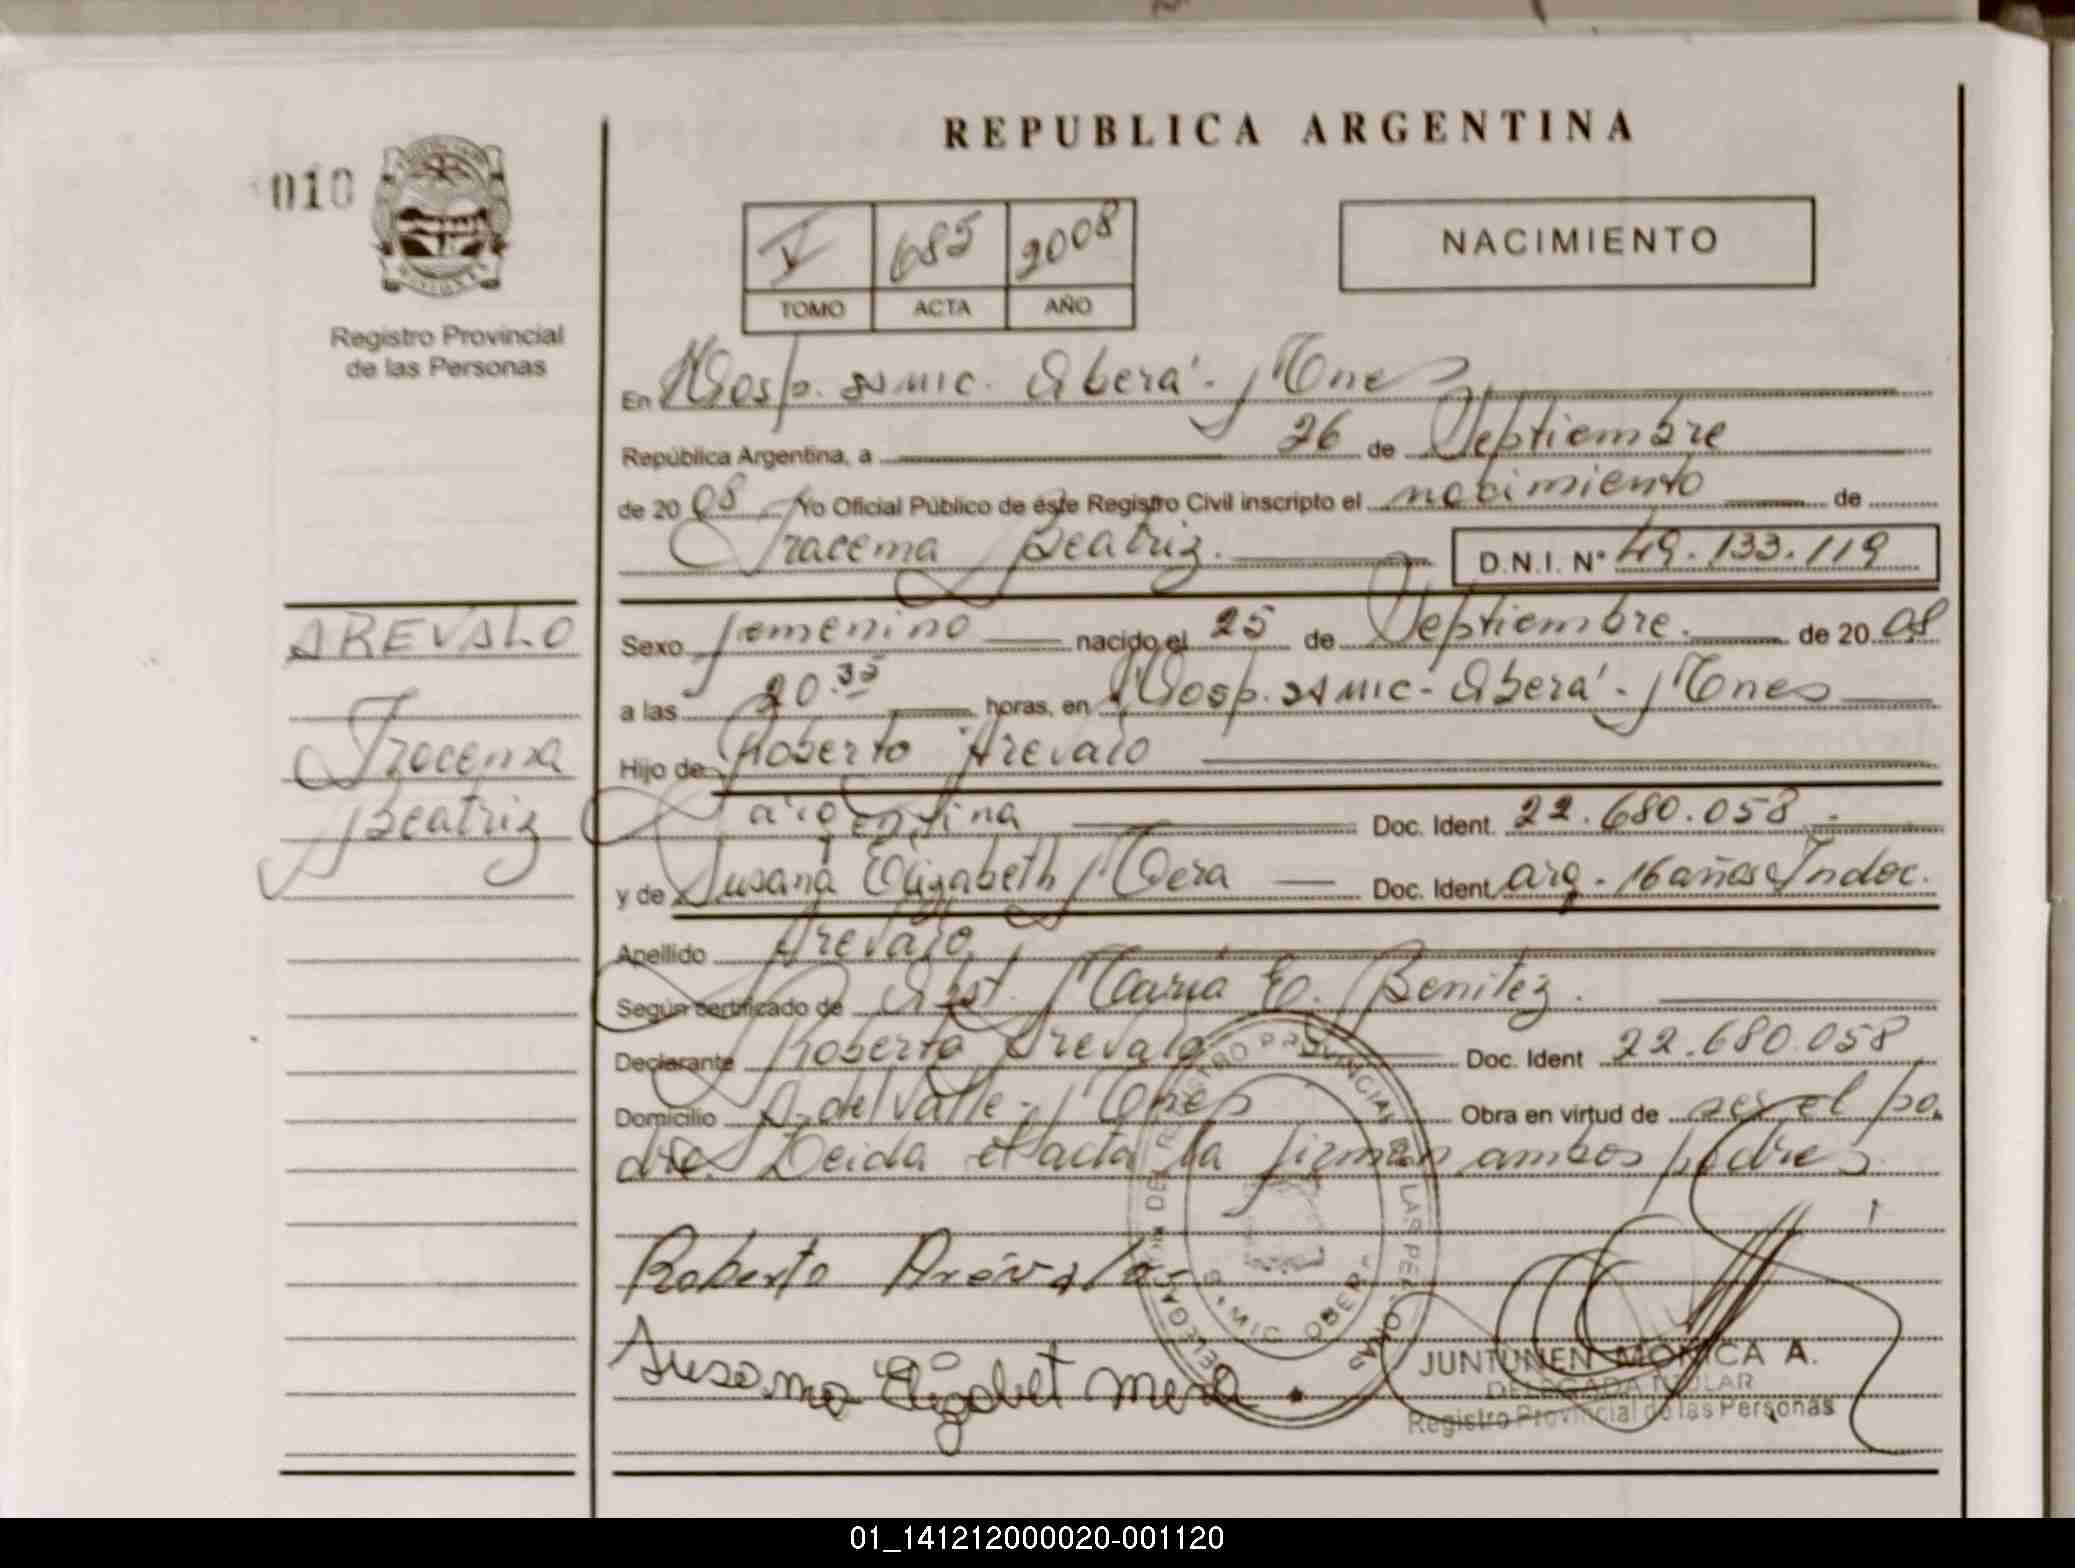 REPUBLICA ARGENTINA
010
V 685 2008
TOMO ACTA AÑO
NACIMIENTO
Registro Provincial
de las Personas
En Hosp. SAMIC. Oberá - Mnes
República Argentina, a 26 de Septiembre
de 20 08 Yo Oficial Público de éste Registro Civil inscripto el nacimiento de
Iracema Beatriz. D.N.I. N° 49.133.119
AREVALO
Iracema
Beatriz
Sexo femenino nacido el 25 de Septiembre. de 20 08
a las 20.35 horas, en Hosp. SAMIC - Oberá - Mnes
Hijo de Roberto Arevalo
argentina Doc. Ident. 22.680.058
y de Susana Elizabeth Mera Doc. Ident. arg. - 16 años Indoc.
Apellido Arevalo
Según certificado de Obst. María E. Benitez.
Declarante Roberto Arevalo Doc. Ident 22.680.058
Domicilio A. del Valle - Mnes Obra en virtud de ser el pa
dre. Leida el acta la firman ambos padres
Roberto Arévalo
Susana Elizabet Mera
DELEGACION DEL REGISTRO PROVINCIAL DE LAS PERSONAS
SAMIC OBERA
JUNTUNEN MONICA A.
DELEGADA TITULAR
Registro Provincial de las Personas
01_141212000020-001120